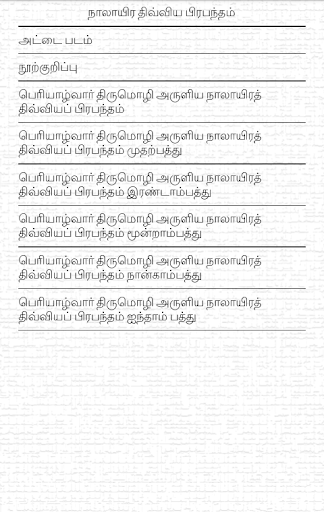 நாலாயிர திவ்விய பிரபந்தம்
அட்டை படம்
நூற்குறிப்பு
பெரியாழ்வார் திருமொழி அருளிய நாலாயிரத்
திவ்வியப் பிரபந்தம்
பெரியாழ்வார் திருமொழி அருளிய நாலாயிரத்
திவ்வியப் பிரபந்தம் முதற்பத்து
பெரியாழ்வார் திருமொழி அருளிய நாலாயிரத்
திவ்வியப் பிரபந்தம் இரண்டாம்பத்து
பெரியாழ்வார் திருமொழி அருளிய நாலாயிரத்
திவ்வியப் பிரபந்தம் மூன்றாம்பத்து
பெரியாழ்வார் திருமொழி அருளிய நாலாயிரத்
திவ்வியப் பிரபந்தம் நான்காம்பத்து
பெரியாழ்வார் திருமொழி அருளிய நாலாயிரத்
திவ்வியப் பிரபந்தம் ஐந்தாம் பத்து